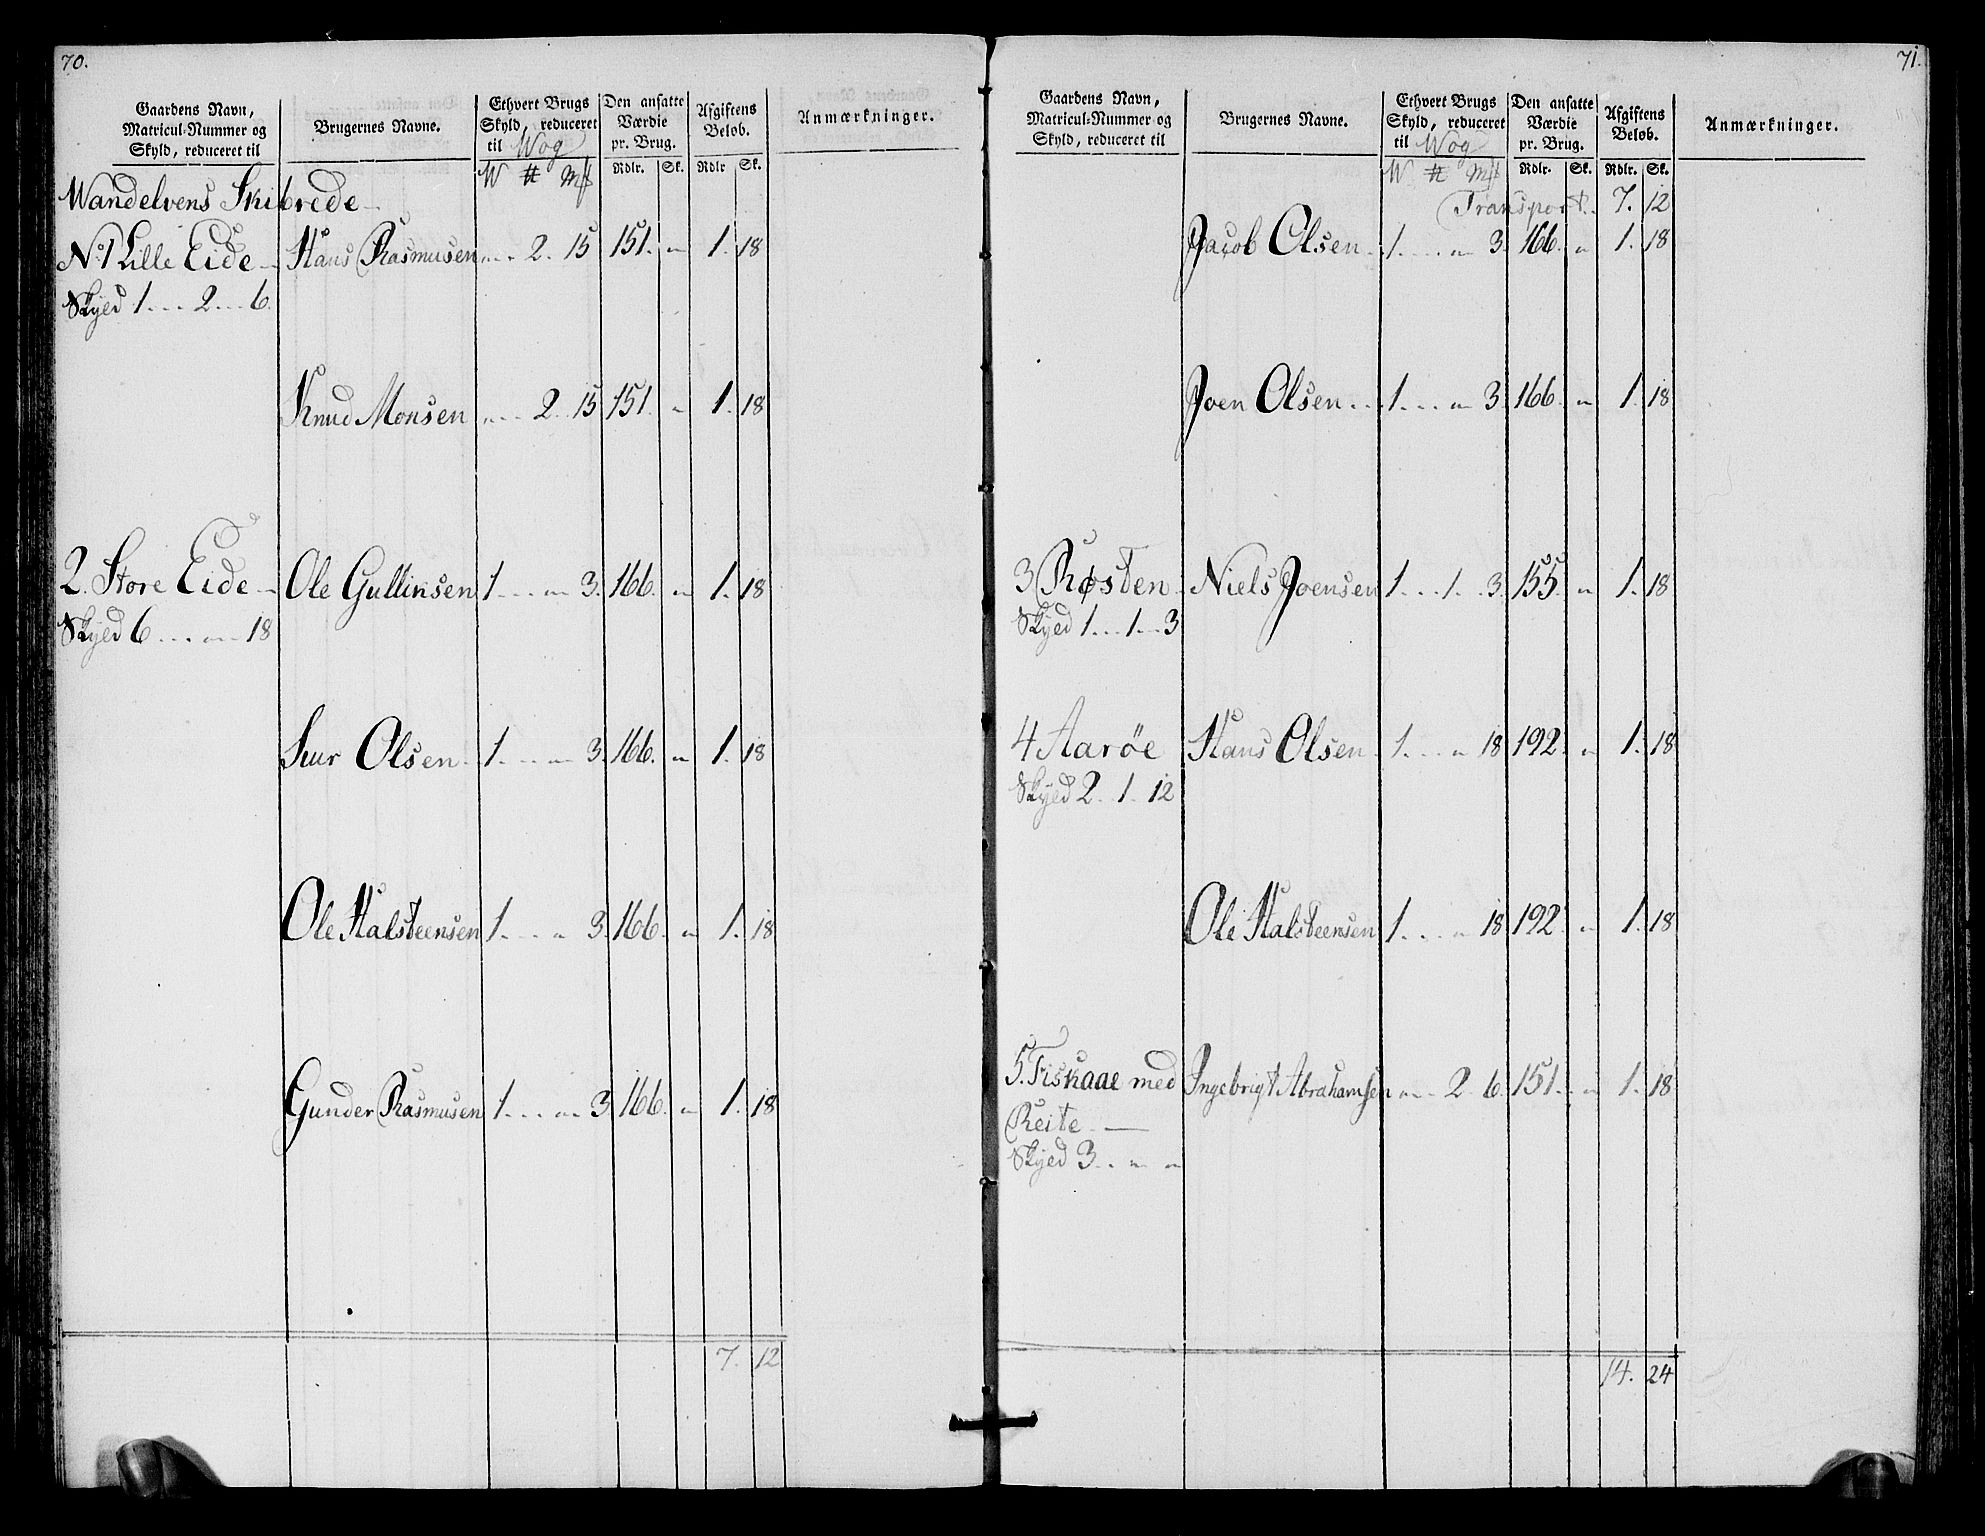 70.
Gaardens Navn, Matricul-Nummer og Skyld, reduceret til
Brugernes Navne.
Ethvert Brugs Skyld, reduceret til Wog
Den ansatte Værdie pr. Brug.
Afgiftens Beløb.
Anmærkninger.
W # Mk Rdlr. Sk. Rdlr Sk.
Wandelvens Skibrede
No 1 Lille Eide Hans Rasmusen " 2. 15 151. " 1. 18
Skyld 1 2 6.
Knud Monsen " 2. 15 151. " 1. 18
2. Store Eide Ole Gullinsen 1 " 3. 166. " 1. 18
Skyld 6 " 18
Siur Olsen 1. " 3. 166. " 1. 18
Ole Halsteensen 1. " 3. 166. " 1. 18
Gunder Rasmusen 1. " 3. 166. " 1. 18
7. 12
71.
Gaardens Navn, Matricul-Nummer og Skyld, reduceret til
Brugernes Navne.
Ethvert Brugs Skyld, reduceret til Wog
Den ansatte Værdie pr. Brug.
Afgiftens Beløb.
Anmærkninger.
W # Mk Rdlr. Sk. Rdlr. Sk.
Transport. 7. 12
Jacob Olsen 1. " 3. 166. " 1. 18
Joen Olsen 1. " 3. 166. " 1. 18
3 Røsten Niels Joensen 1 1. 3. 155. " 1. 18
Skyld 1. 1. 3
4 Aarøe Hans Olsen 1. " 18 192. " 1. 18
Skyld 2. 1. 12
Ole Halsteensen 1. " 18 192. " 1. 18
5. Fiskaae med Ingebrigt Abrahamsen " 2. 6. 151. " 1. 18
Reite
Skyld 3. " "
14. 24